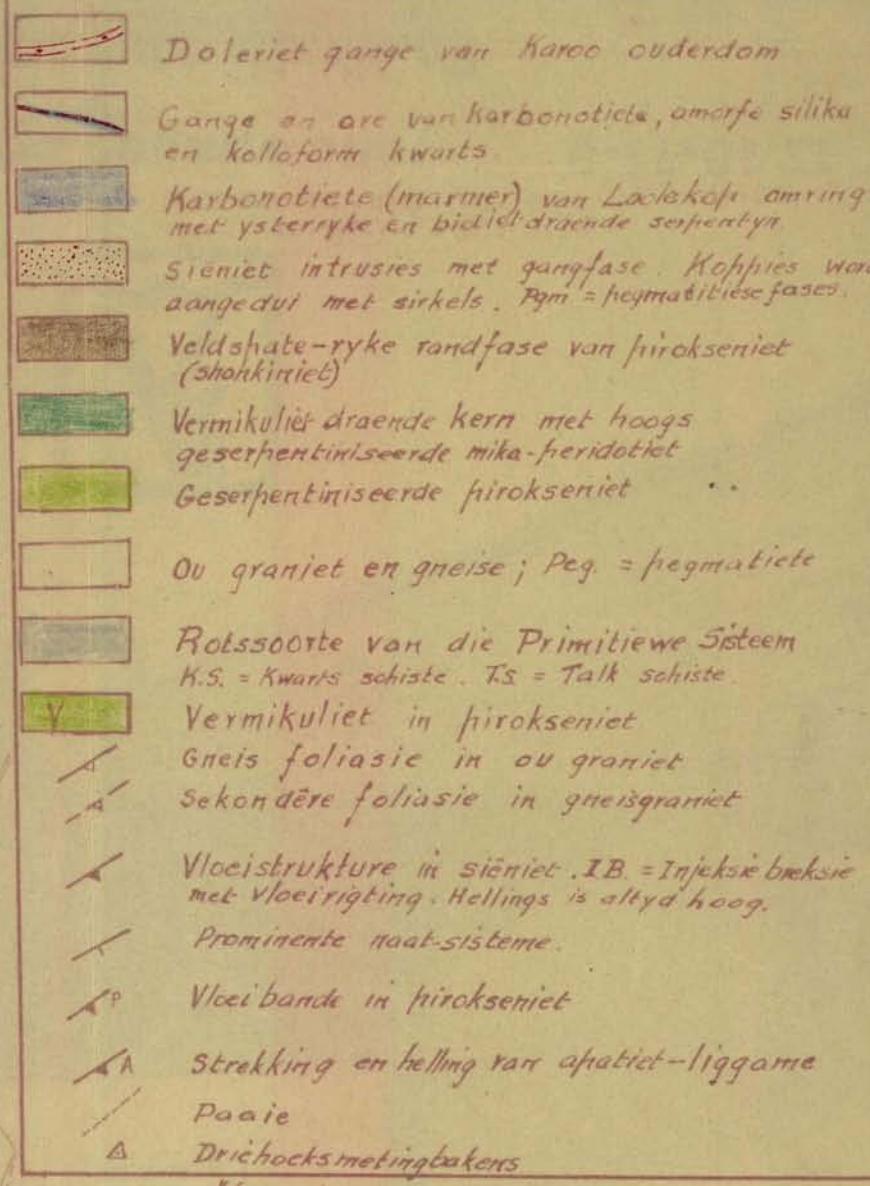 Doleriet gange van Karoo ouderdom
Gange en are van karbonatiete, amorfe silika
en kolloform kwarts
Karbonatiete (marmer) van Loolekop omring
met ysterryke en bidietdraende serpentyn
Siëniet intrusies met gangfase. Koppies word
aangedui met sirkels. Pgm = pegmatitiese fases.
Veldspate-ryke randfase van pirokseniet
(shonkiniet)
Vermikuliet draende kern met hoogs
geserpentiniseerde mika-peridotiet
Geserpentiniseerde pirokseniet
Ou graniet en gneise; Peg. = pegmatiete
Rotssoorte van die Primitiewe Sisteem
K.S. = Kwarts schiste. T.S = Talk schiste.
V Vermikuliet in pirokseniet
Gneis foliasie in ou graniet
Sekondêre foliasie in gneisgraniet
Vloeistrukture in siëniet. I.B. = Injeksie breksie
met vloeirigting. Hellings is altyd hoog.
Prominente naat-sisteme.
P Vloeibande in pirokseniet
A Strekking en helling van apatiet-liggame
Paaie
Driehoeksmetingbakens